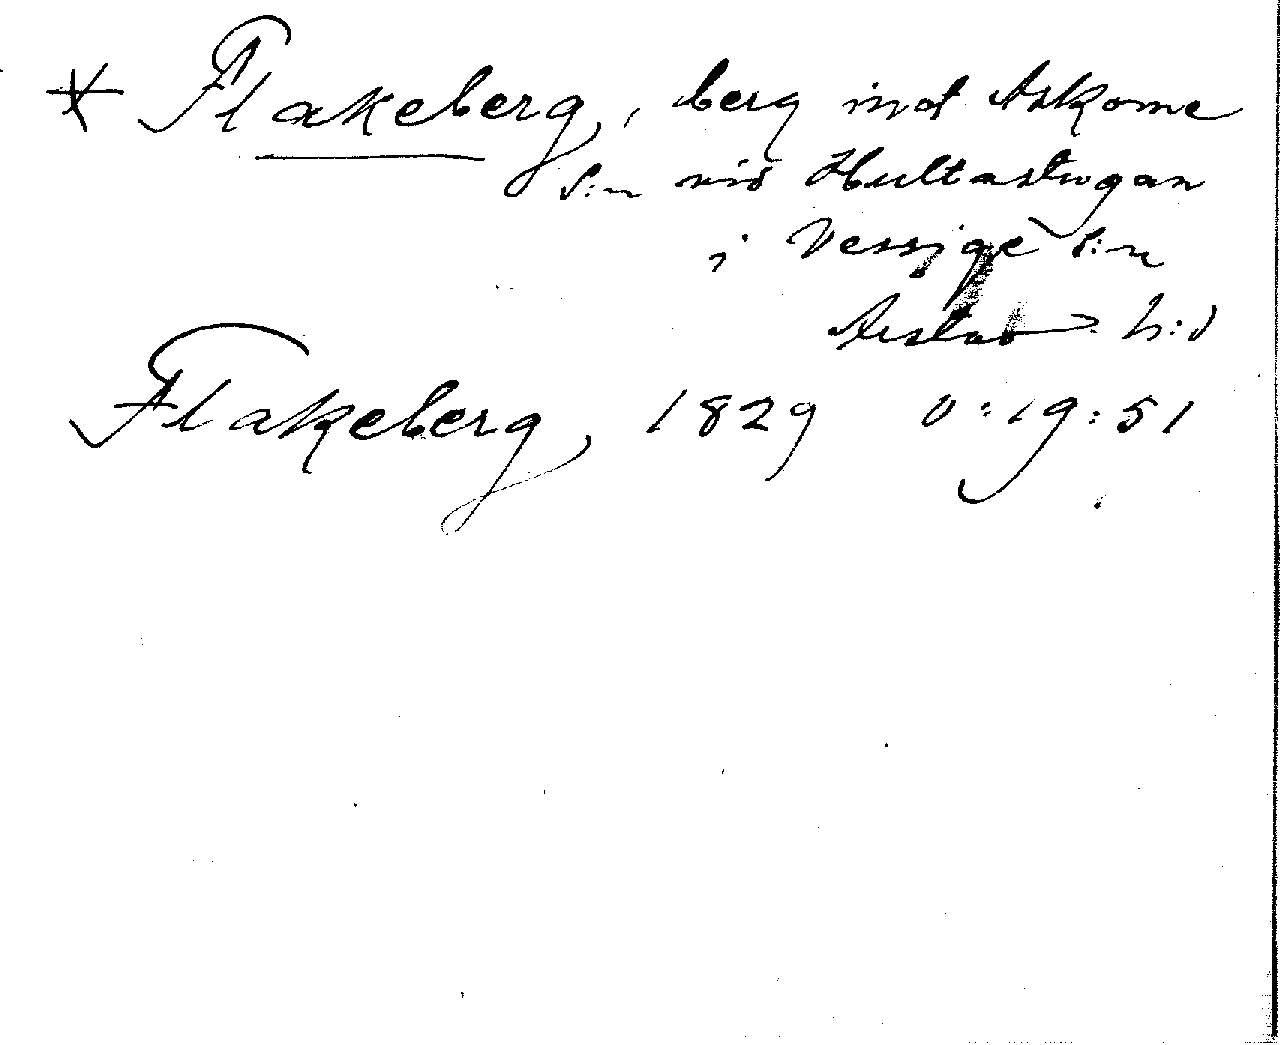 * Flakeberg, berg mot Askome
S:n vid Hultastugan
i Vessige S:n
Årstad h:d
Flakeberg, 1829 0:19:51